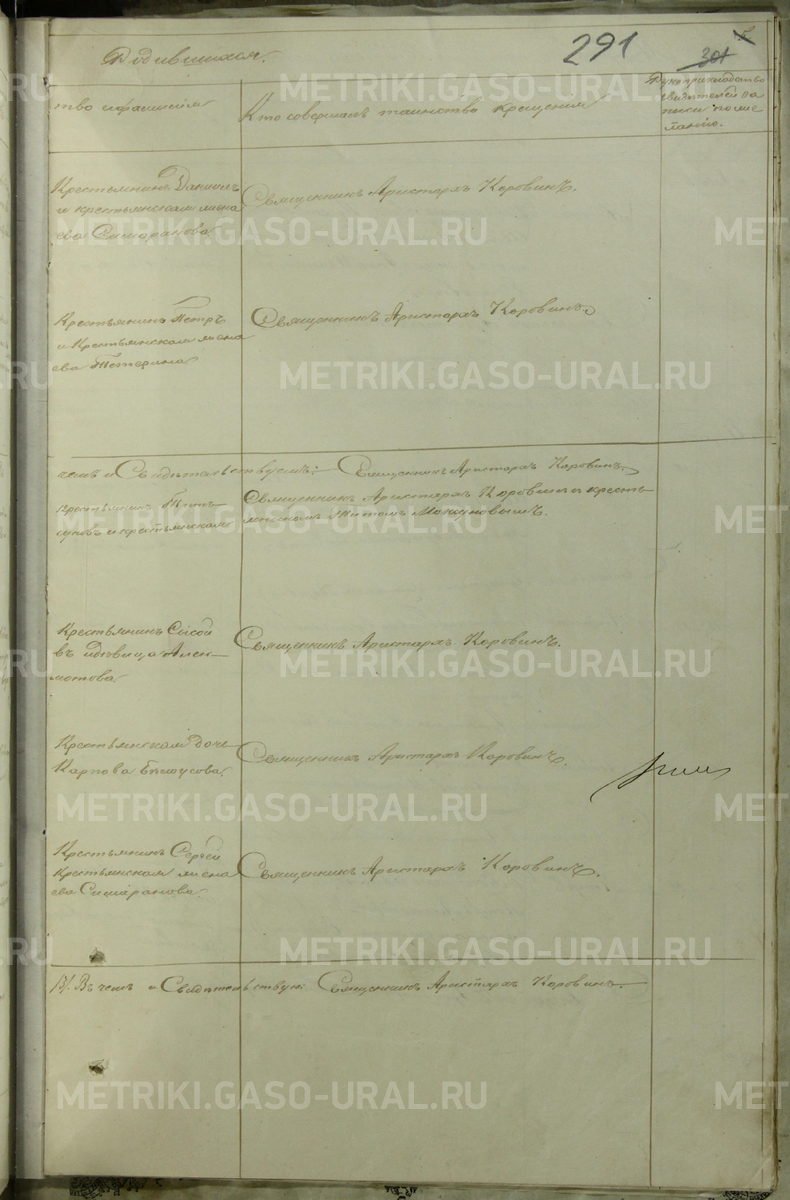 Родившихся.
291
301
тво и фамилія
Кто совершалъ таинство крещенія
Рукоприкладство
свидѣтелей за
писи по же
ланію.
Крестьянинъ Даніилъ
и крестьянская жена
ева Симаранова
Священникъ Аристархъ Коровинъ.
Крестьянинъ Петръ
и Крестьянская жена
ева Тетерина
Священникъ Аристархъ Коровинъ.
чемъ и Свидѣтельствуемъ: Священникъ Аристархъ Коровинъ.
крестьянинъ Титъ
суновъ и крестьянская
Священникъ Аристархъ Коровинъ и кресть
янскомъ Титомъ Мокуновымъ.
Крестьянинъ Сысой
въ и дѣвица Ален
мотова
Священникъ Аристархъ Коровинъ.
Крестьянская дочь
Карпова Бѣлоусова.
Священникъ Аристархъ Коровинъ.
Крестьянинъ Сергѣй
Крестьянская жена
ева Симаранова.
Священникъ Аристархъ Коровинъ.
Въ чемъ и Свидѣтельствую: Священникъ Аристархъ Коровинъ.
METRIKI.GASO-URAL.RU